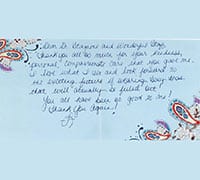 Dear Dr. and
Thank you all so much for your kindness,
personal, compassionate care that you gave me.
I love what I see and look forward to
the exciting future of wearing bras
that will actually be filled out!
You all have been so good to me!
Thank you again!